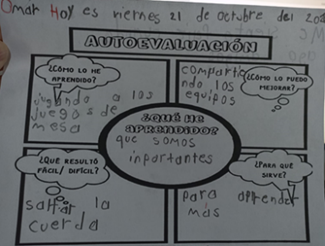 Omar Hoy es viernes 21 de octubre del 202
AUTOEVALUACIÓN
¿CÓMO LO HE
APRENDIDO?
jugando a los
juegos de
mesa
compartie
ndo los
equipos
¿CÓMO LO PUEDO
MEJORAR?
¿QUÉ HE
APRENDIDO?
que somos
inportantes
¿QUE RESULTÓ
FÁCIL/ DIFÍCIL?
saltar la
cuerda
¿PARA QUÉ
SIRVE?
para aprender
más